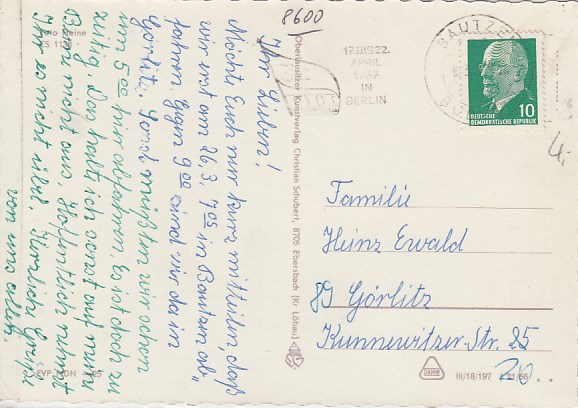 8600
Ihr Lieben!
Möchte Euch nur kurz mitteilen, daß
wir erst am 26.3. 7 05 in Bautzen ab-
fahren. Gegen 9 00 sind wir da in
Görlitz. Sonst müßten wir schon
um 5 00 hier abfahren. Es ist doch zu
zeitig. Das halte ich sonst auf nun
nicht aus. Hoffentlich nehmt
Ihr es nicht übel. Herzliche Grüße
von uns allen.
Foto
ES 11
EVP MDN -.25
Oberlausitzer Kunstverlag Christian Schubert, 8705 Ebersbach (Kr. Löbau)
17. BIS 22.
APRIL
1967
IN
BERLIN
BAUTZEN
10
DEUTSCHE
DEMOKRATISCHE REPUBLIK
4,-
Familie
Heinz Ewald
89 Görlitz
Kunnewitzer-Str. 25
20
III/18/197